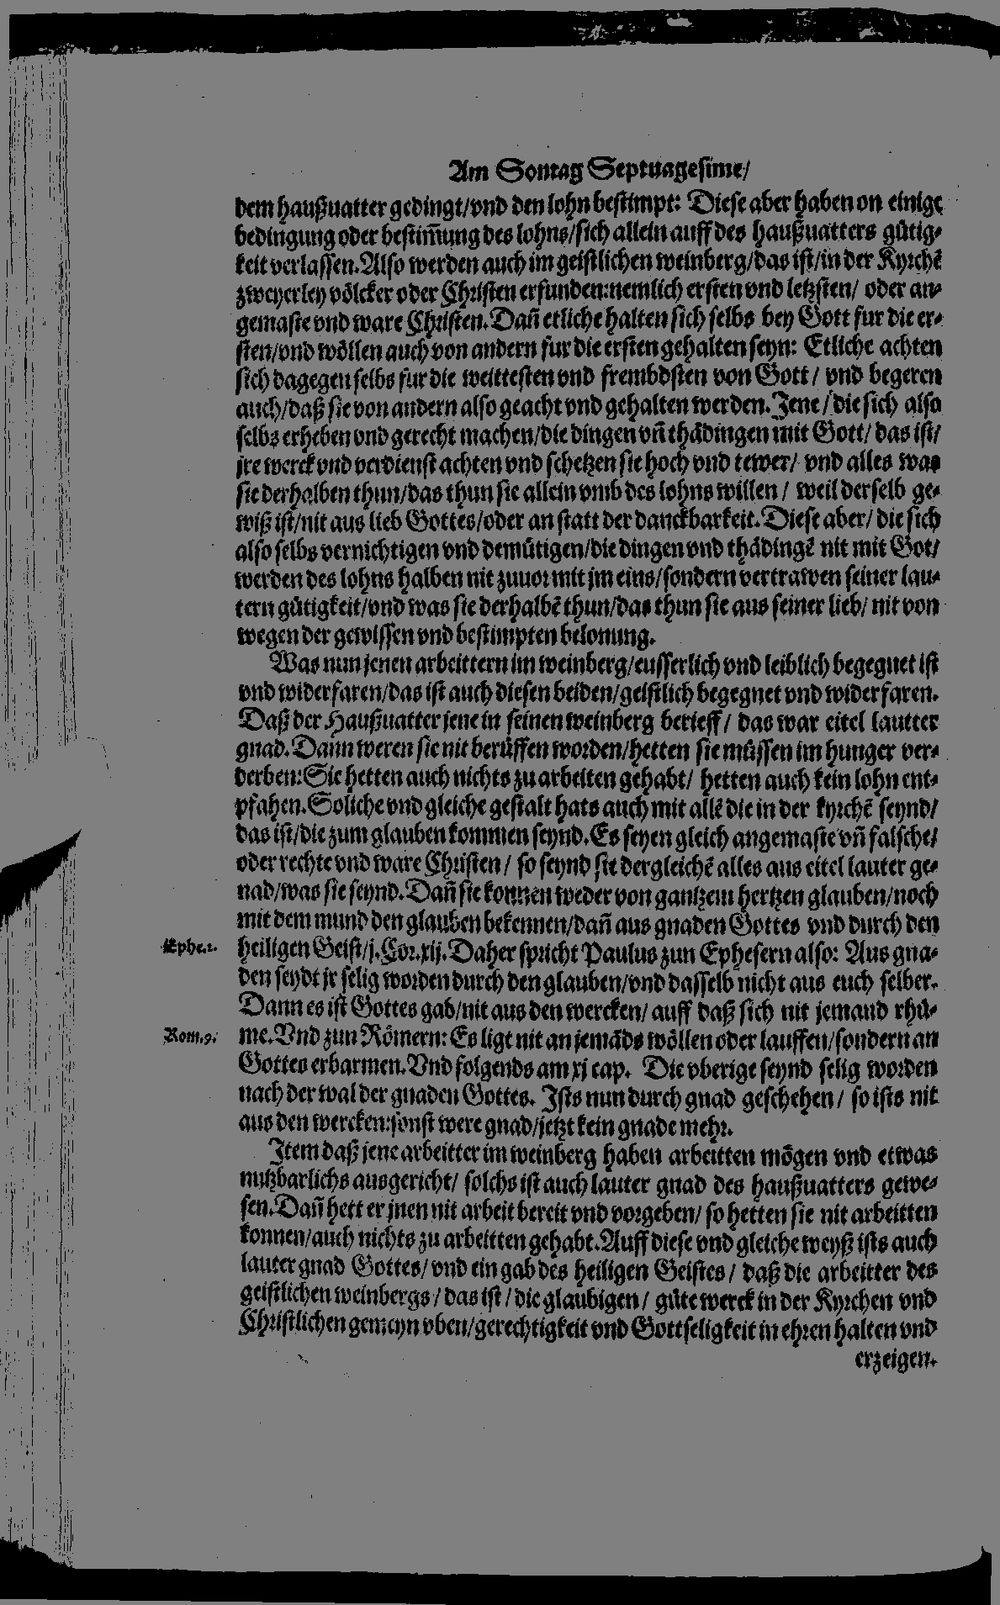 Am Sontag Septuagesime/
dem haußuatter gedingt/vnd den lohn bestimpt: Diese aber haben on einige
bedingung oder bestim̃ung des lohns/sich allein auff des haußuatters gütig-
keit verlassen. Also werden auch im geistlichen weinberg/das ist/in der Kyrchẽ
zweyerley völcker oder Christen erfunden: nemlich ersten vnd letzsten/ oder an-
gemaste vnd ware Christen. Dañ etliche halten sich selbs bey Gott fur die er-
sten/vnd wöllen auch von andern fur die ersten gehalten seyn: Etliche achten
sich dagegen selbs fur die weittesten vnd frembdsten von Gott/ vnd begeren
auch/daß sie von andern also geacht vnd gehalten werden. Jene/ die sich also
selbs erheben vnd gerecht machen/die dingen vñ thädingen mit Gott/ das ist/
jre werck vnd verdienst achten vnd schetzen sie hoch vnd tewer/ vnd alles was
sie derhalben thun/das thun sie allein vmb des lohns willen/ weil derselb ge-
wiß ist/nit aus lieb Gottes/oder an statt der danckbarkeit. Diese aber/ die sich
also selbs vernichtigen vnd demütigen/die dingen vnd thädingẽ nit mit Got/
werden des lohns halben nit zuuor mit jm eins/sondern vertrawen seiner lau-
tern gütigkeit/vnd was sie derhalbẽ thun/das thun sie aus seiner lieb/ nit von
wegen der gewissen vnd bestimpten belonung.
Was nun jenen arbeittern im weinberg/eusserlich vnd leiblich begegnet ist
vnd widerfaren/das ist auch diesen beiden/geistlich begegnet vnd widerfaren.
Daß der Haußuatter jene in seinen weinberg berieff/ das war eitel lautter
gnad. Dann weren sie nit berüffen worden/hetten sie müssen im hunger ver-
derben: Sie hetten auch nichts zu arbeiten gehabt/ hetten auch kein lohn ent-
pfahen. Soliche vnd gleiche gestalt hats auch mit allẽ die in der kyrchẽ seynd/
das ist/die zum glauben kommen seynd. Es seyen gleich angemaste vñ falsche/
oder rechte vnd ware Christen/ so seynd sie dergleichẽ alles aus eitel lauter ge-
nad/was sie seynd. Dañ sie konnen weder von gantzem hertzen glauben/noch
mit dem mund den glauben bekennen/dañ aus gnaden Gottes vnd durch den
Ephe.2. heiligen Geist/j. Cor. xij. Daher spricht Paulus zun Ephesern also: Aus gna-
den seydt jr selig worden durch den glauben/vnd dasselb nicht aus euch selber.
Dann es ist Gottes gab/nit aus den wercken/ auff daß sich nit jemand rhü-
Rom.9. me. Vnd zun Römern: Es ligt nit an jemãds wöllen oder lauffen/sondern an
Gottes erbarmen. Vnd folgends am xj cap. Die vberige seynd selig worden
nach der wal der gnaden Gottes. Ists nun durch gnad geschehen/ so ists nit
aus den wercken: sonst were gnad/jetzt kein gnade mehr.
Item daß jene arbeitter im weinberg haben arbeitten mögen vnd etwas
nutzbarlichs ausgericht/ solchs ist auch lauter gnad des haußuatters gewe-
sen. Dañ hett er jnen nit arbeit bereit vnd vorgeben/ so hetten sie nit arbeitten
konnen/auch nichts zu arbeitten gehabt. Auff diese vnd gleiche weyß ists auch
lauter gnad Gottes/ vnd ein gab des heiligen Geistes/ daß die arbeitter des
geistlichen weinbergs/ das ist/ die glaubigen/ güte werck in der Kyrchen vnd
Christlichen gemeyn vben/gerechtigkeit vnd Gottseligkeit in ehren halten vnd
erzeigen.